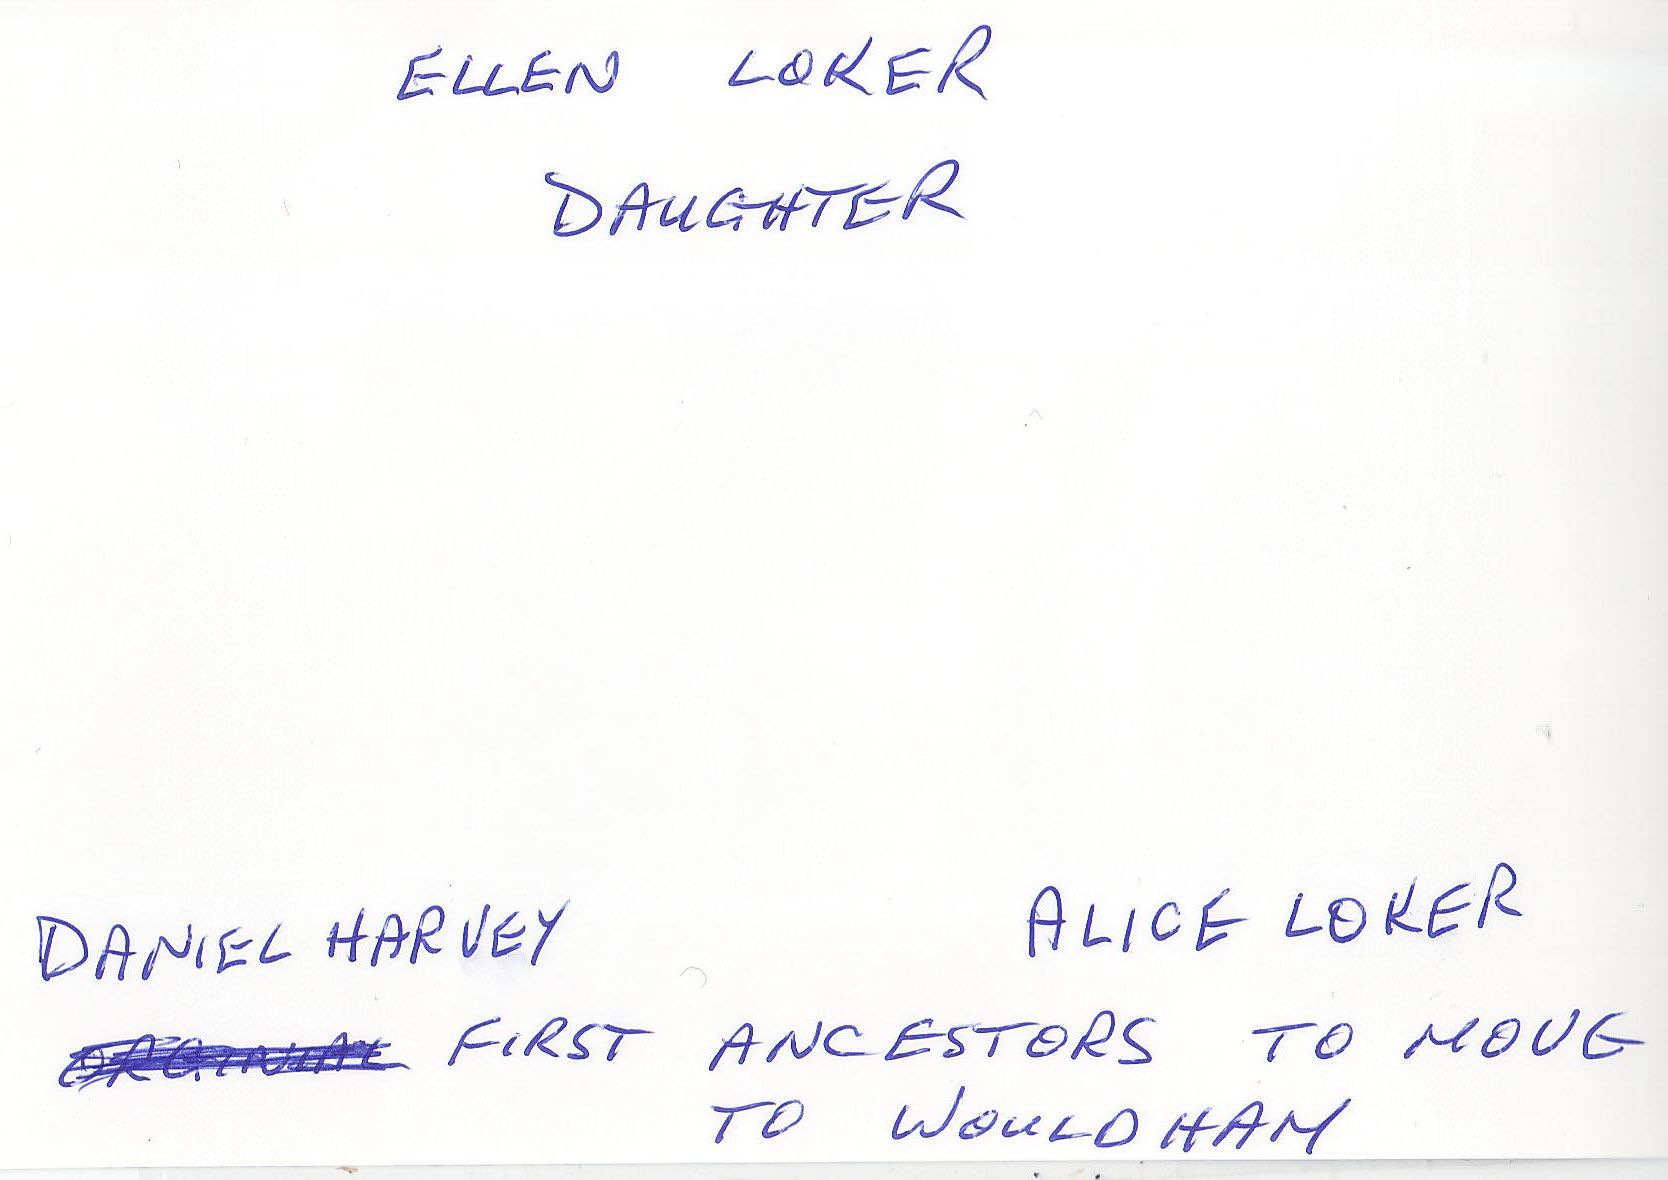 ELLEN LOKER
DAUGHTER
DANIEL HARVEY ALICE LOKER
FIRST ANCESTORS TO MOVE
TO WOULDHAM